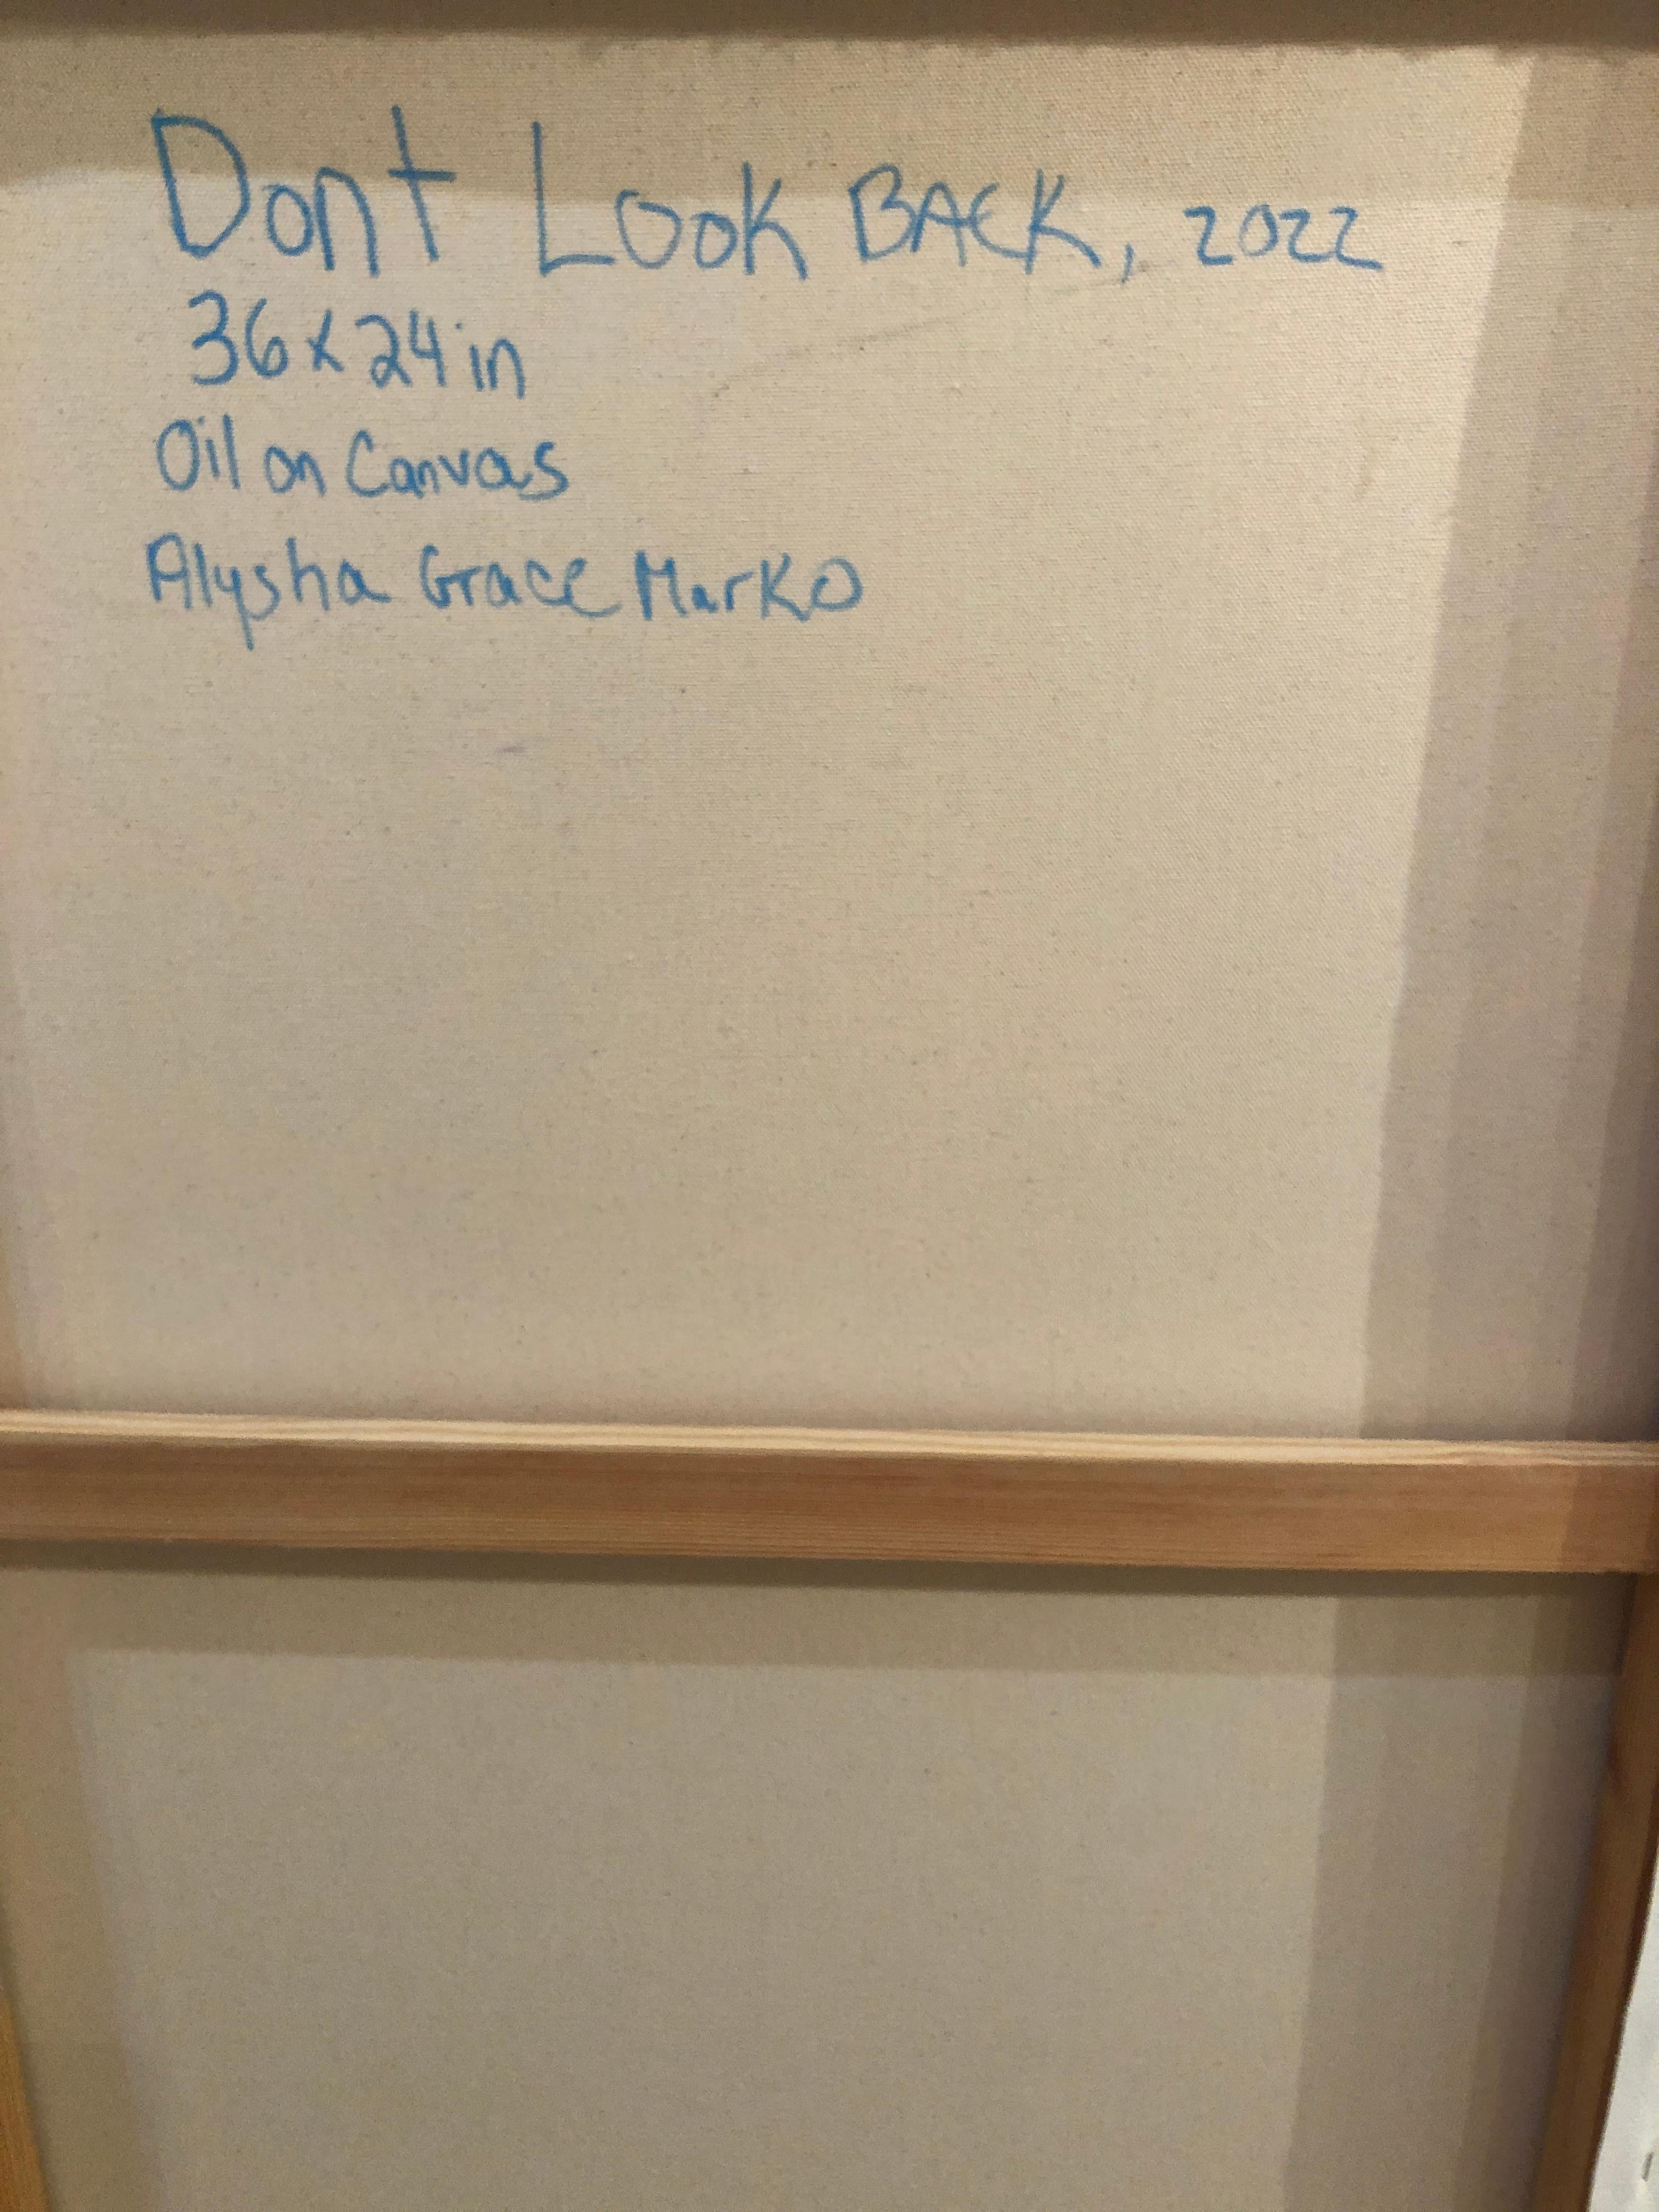 Dont Look BACK, 2022
36x24in
Oil on Canvas
Alysha Grace Marko